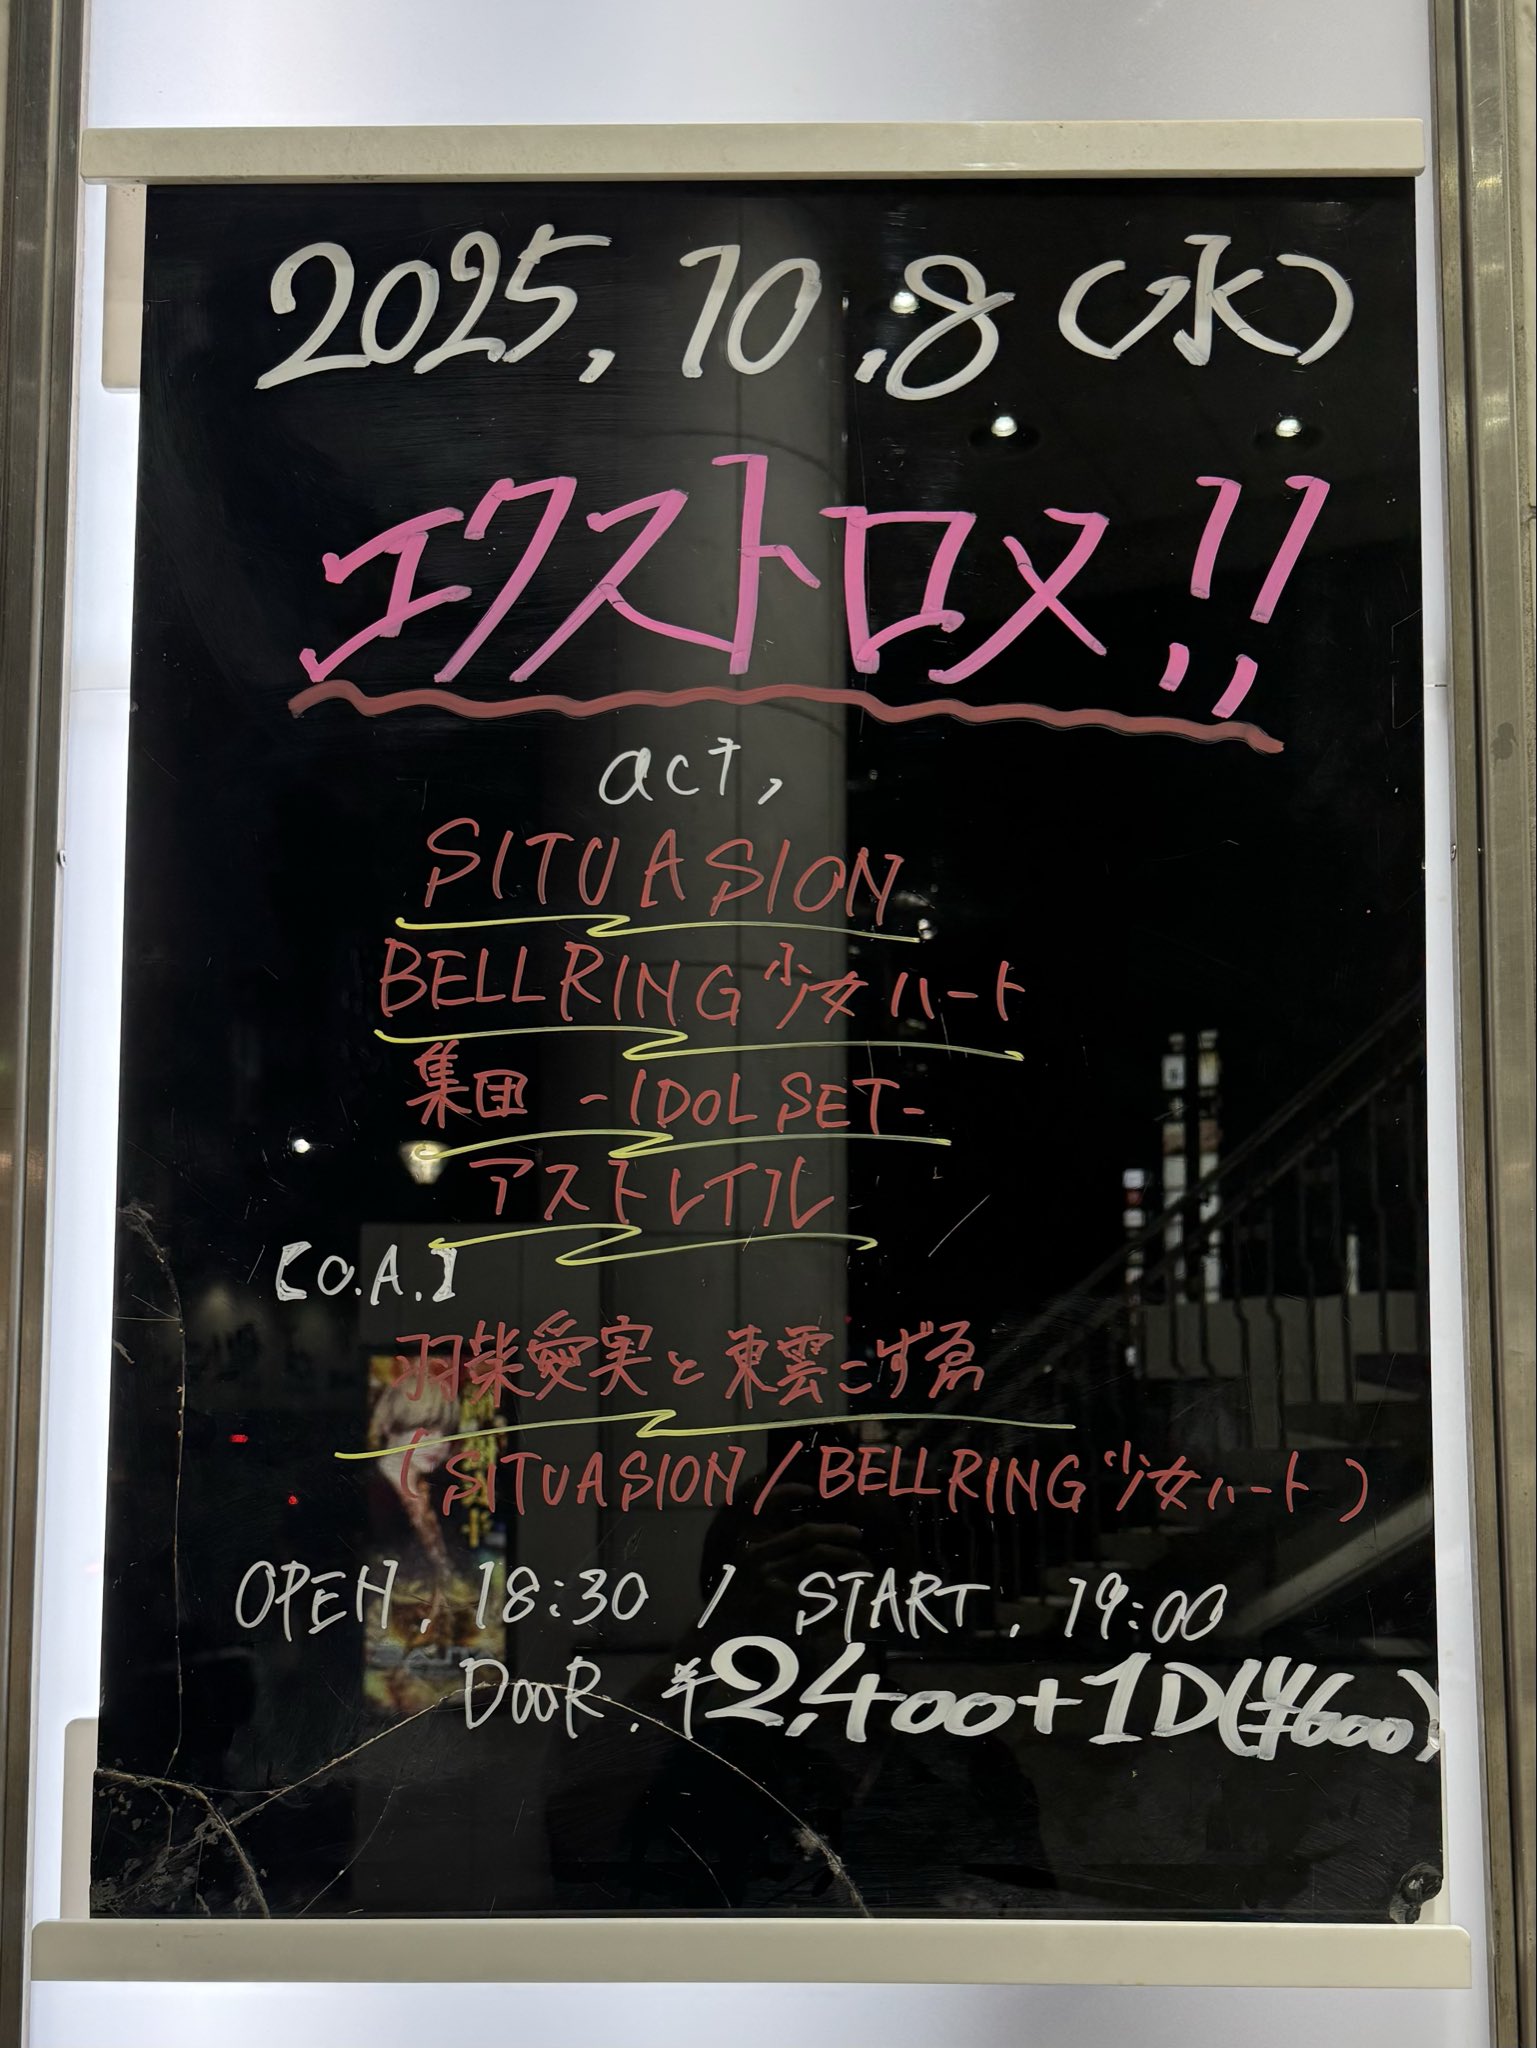 2025.10.8(水)
エクストロメ!!
act,
SITUASION
BELLRING少女ハート
集団 -IDOL SET-
アストレイル
【O.A.】
羽柴愛実と東雲こずゑ
(SITUASION/BELLRING少女ハート)
OPEN. 18:30 / START. 19:00
DooR. ¥2,400+1D(¥600)